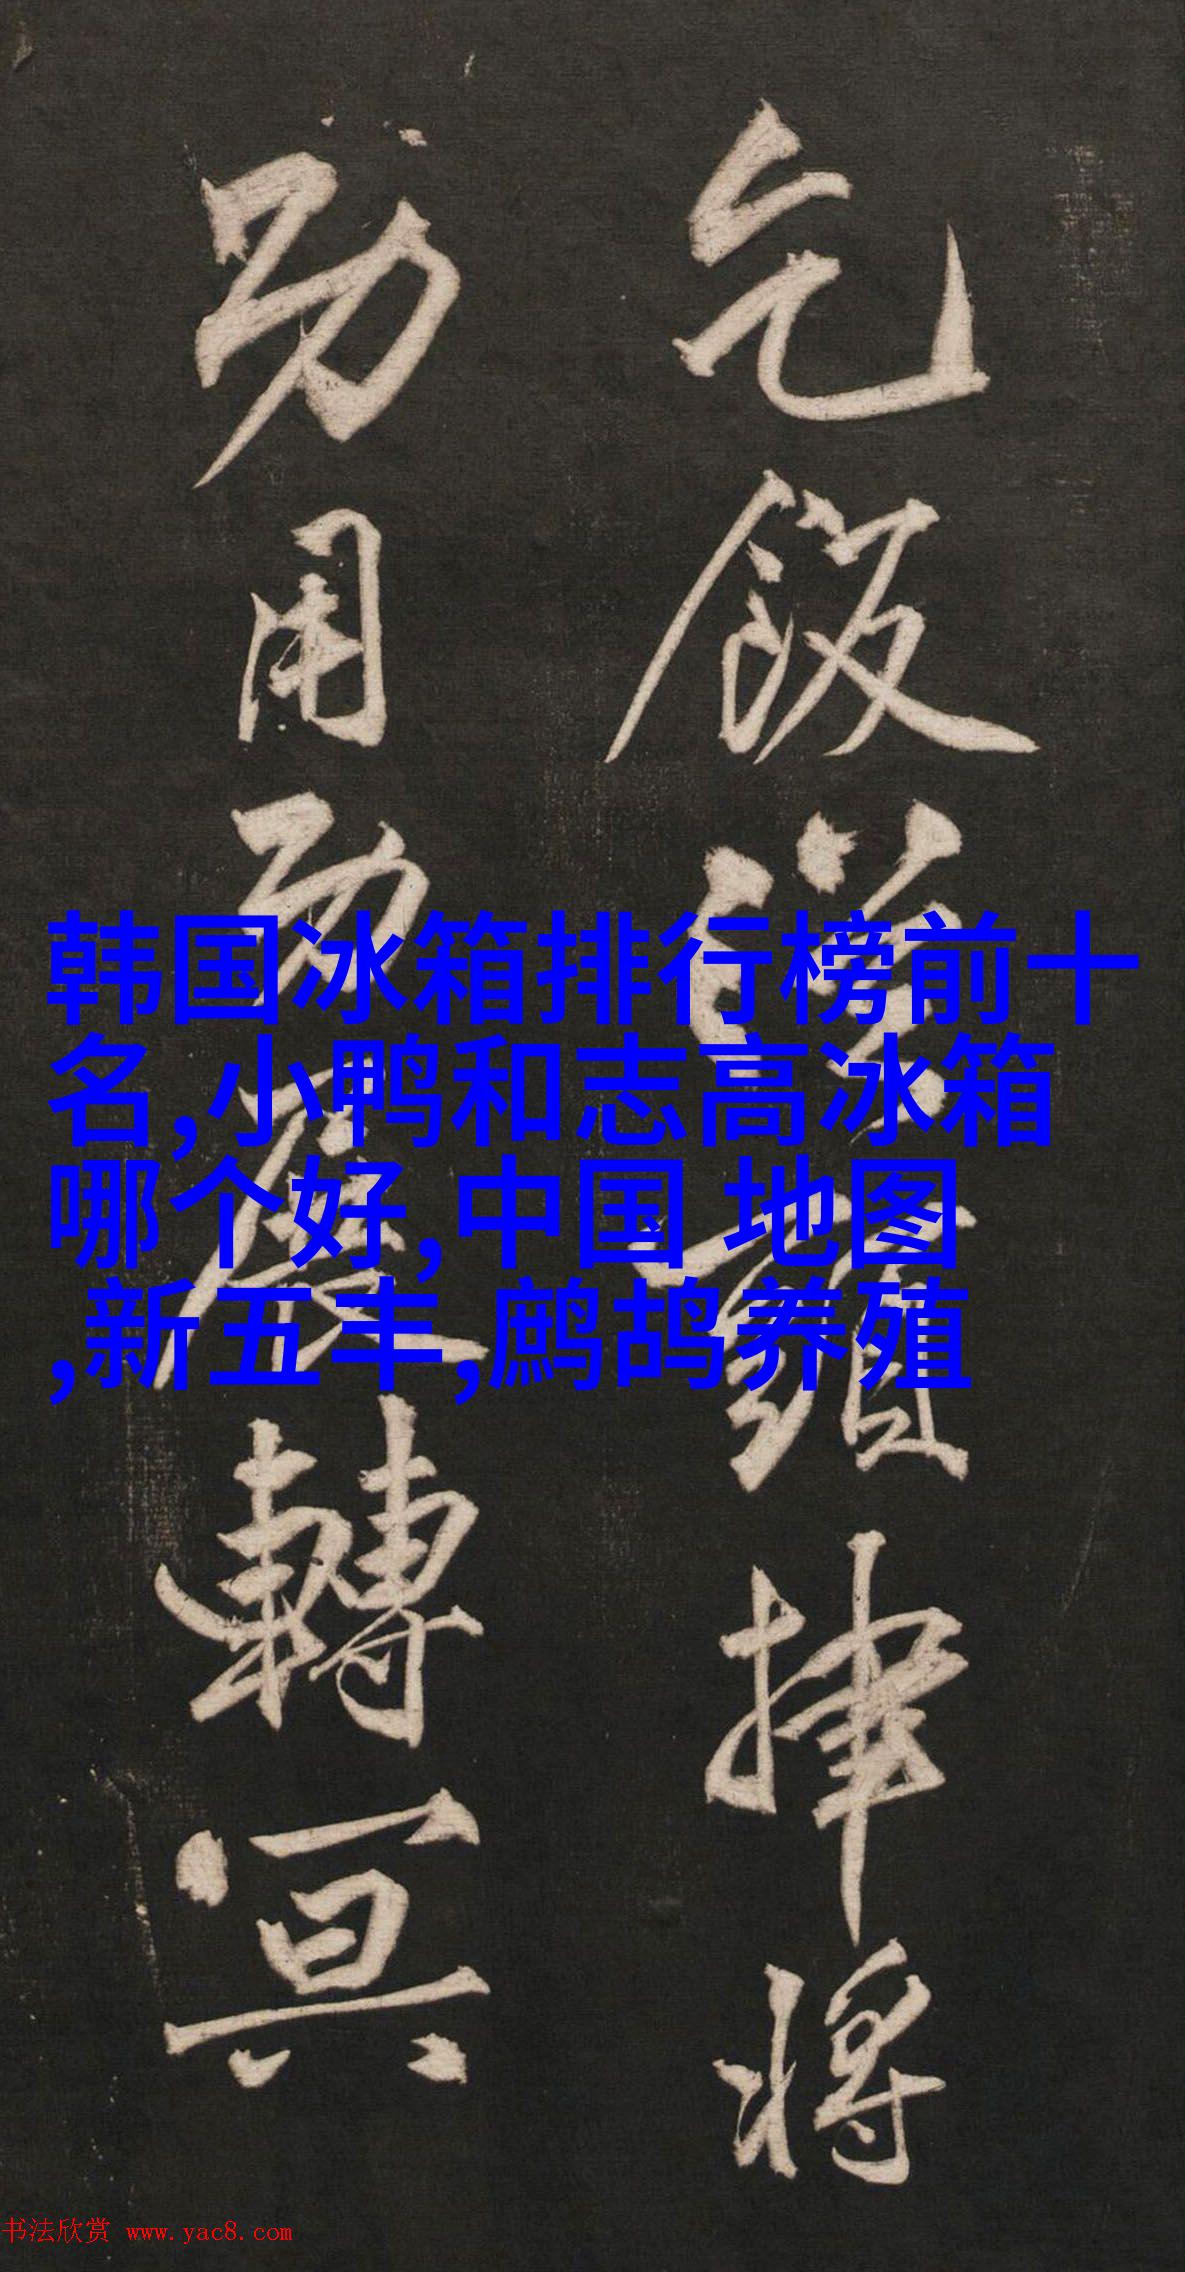 乞飯頭將
功用功展轉冥
韩国冰箱排行榜前十
名,小鸭和志高冰箱
哪个好,中国 地图
,新五丰,鹧鸪养殖
书法欣赏 www.yac8.com